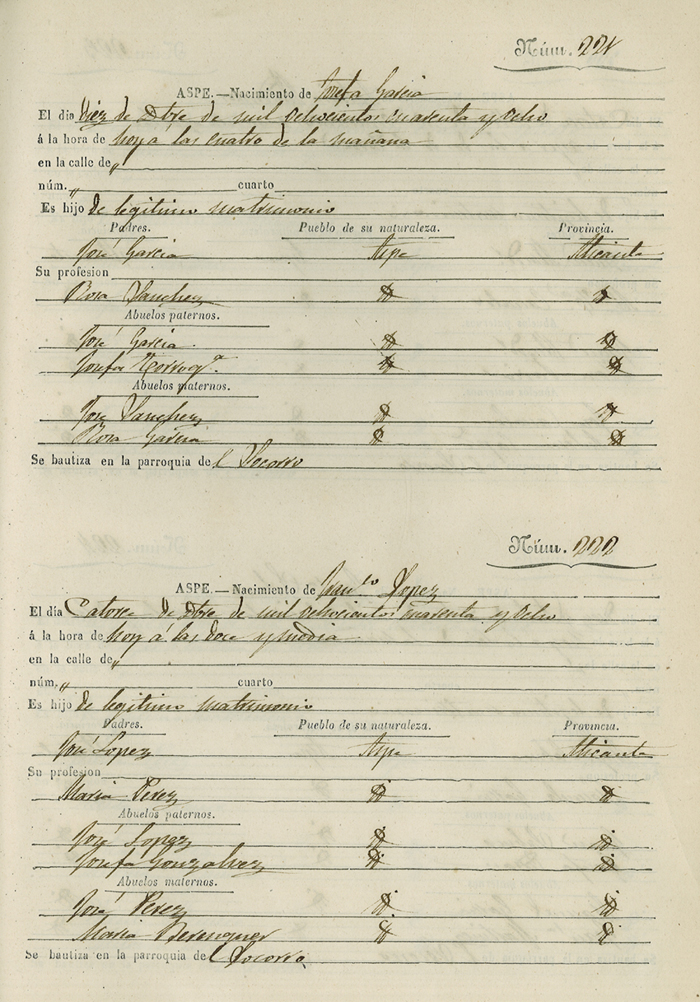 Núm. 221
ASPE.—Nacimiento de Josefa Garcia
El día Diez de Obre de mil ochocientos cuarenta y ocho
á la hora de hoy á las cuatro de la mañana
en la calle de „
núm. „ cuarto
Es hijo de legitimo matrimonio
Padres. Pueblo de su naturaleza. Provincia.
José Garcia Aspe Alicante
Su profesion
Rosa Sanchez id id
Abuelos paternos.
José Garcia. id id
Josefa id id
Abuelos maternos.
José Sanchez id id
Rosa Garcia id id
Se bautiza en la parroquia del Socorro
Núm. 222
ASPE.—Nacimiento de Lopez
El día Catorce de Obre de mil ochocientos cuarenta y ocho
á la hora de hoy á las doce y media
en la calle de „
núm. „ cuarto
Es hijo de legitimo matrimonio
Padres. Pueblo de su naturaleza. Provincia.
José Lopez Aspe Alicante
Su profesion
Maria Perez id id
Abuelos paternos.
José Lopez id id
Josefa Gonzalvez id id
Abuelos maternos.
José Perez id id
Maria Berenguer id id
Se bautiza en la parroquia del Socorro.